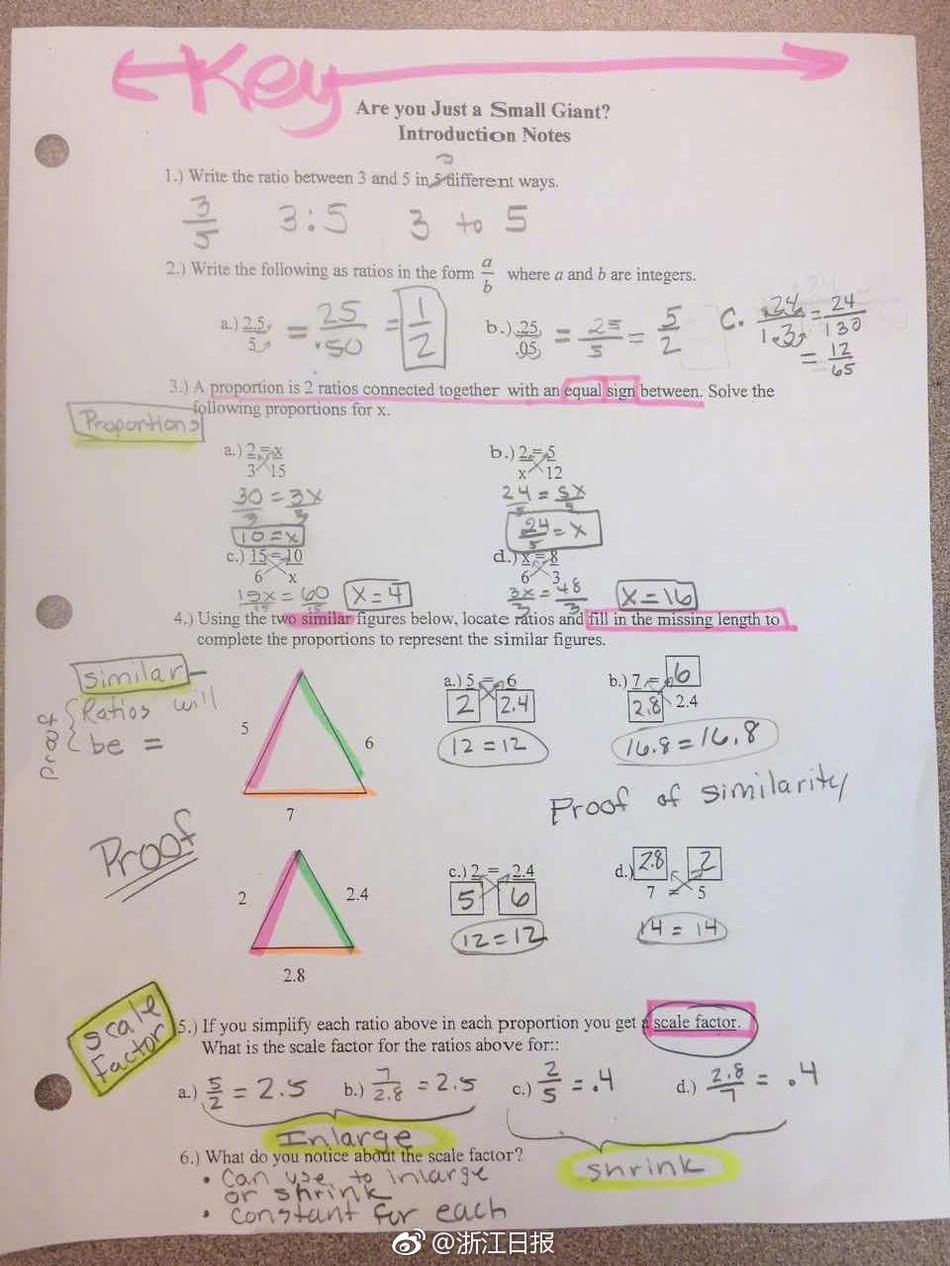 Key
Are you Just a Small Giant?
Introduction Notes
1.) Write the ratio between 3 and 5 in 3 different ways.
3/5 3:5 3 to 5
2.) Write the following as ratios in the form a/b where a and b are integers.
a.) 2.5/5 = 25/50 = 1/2 b.) .25/.05 = 25/5 = 5/2 C. .24/1.3 = 24/130
= 12/65
3.) A proportion is 2 ratios connected together with an equal sign between. Solve the
following proportions for x.
Proportions
a.) 2/3 = x/15 b.) 2/x = 5/12
30/3 = 3x/3 24/5 = 5x/5
10 = x 24/5 = x
c.) 15/6 = 10/x d.) x/6 = 8/3
15x/15 = 60/15 x = 4 3x/3 = 48/3 x = 16
4.) Using the two similar figures below, locate ratios and fill in the missing length to
complete the proportions to represent the similar figures.
Similar -
Ratios will
be =
Proof
5 6 7
a.) 5/2 = 6/2.4 b.) 7/2.8 = 6/2.4
12 = 12 16.8 = 16.8
Proof of similarity
2 2.4 2.8
c.) 2/5 = 2.4/6 d.) 2.8/7 = 2/5
12 = 12 14 = 14
Scale
Factor
5.) If you simplify each ratio above in each proportion you get a scale factor.
What is the scale factor for the ratios above for::
a.) 5/2 = 2.5 b.) 7/2.8 = 2.5 c.) 2/5 = .4 d.) 2.8/7 = .4
Inlarge shrink
6.) What do you notice about the scale factor?
• Can use to inlarge
or shrink
• constant for each
@浙江日报